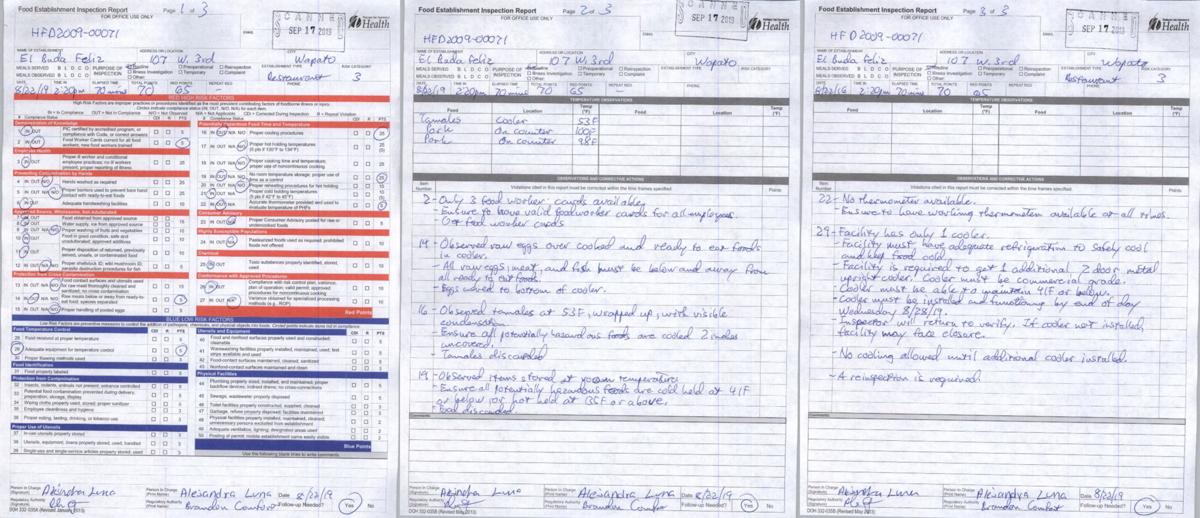 Food Establishment Inspection Report
Page 1 of 3
FOR OFFICE USE ONLY
SCANNED
SEP 17 2019
Health
HFD2009-00071
NAME OF ESTABLISHMENT
ADDRESS OR LOCATION
CITY
El Buda Feliz
107 W. 3rd
Wapato
MEALS SERVED B L D C O
PURPOSE OF INSPECTION
Routine
Preoperational
Reinspection
Illness Investigation
Temporary
Complaint
Other
ESTABLISHMENT TYPE
RISK CATEGORY
MEALS OBSERVED B L D C O
Restaurant
3
DATE
TIME IN
ELAPSED TIME
TOTAL POINTS
RED POINTS
PHONE
8/22/19 2:20pm 70 mins 70 65 -
RED HIGH RISK FACTORS
High Risk Factors are improper practices or procedures identified as the most prevalent contributing factors of foodborne illness or injury.
Demonstration of Knowledge
PIC certified by accredited program, or compliance with Code, or correct answers
Food Worker Cards current for all food workers; new food workers trained
Employee Health
Proper ill worker and conditional employee practices; no ill workers present; proper reporting of illness
Preventing Contamination by Hands
Hands washed as required
Proper barriers used to prevent bare hand contact with ready-to-eat foods
Adequate handwashing facilities
Approved Source, Wholesome, Not Adulterated
Food obtained from approved source
Water supply, ice from approved source
Proper washing of fruits and vegetables
Food in good condition, safe and unadulterated; approved additives
Proper disposition of returned, previously served, unsafe, or contaminated food
Proper shellstock ID; wild mushroom ID; parasite destruction procedures for fish
Protection from Cross Contamination
Food contact surfaces and utensils used for raw meat thoroughly cleaned and sanitized; no cross contamination
Raw meats below or away from ready-to-eat food; species separated
Proper handling of pooled eggs
Potentially Hazardous Food Time and Temperature
Proper cooling procedures
Proper hot holding temperatures
Proper cooking time and temperature; proper use of noncontinuous cooking
No room temperature storage; proper use of time as a control
Proper reheating procedures for hot holding
Proper cold holding temperatures
Accurate thermometer provided and used to evaluate temperature of PHFs
Consumer Advisory
Proper Consumer Advisory posted for raw or undercooked foods
Highly Susceptible Populations
Pasteurized foods used as required; prohibited foods not offered
Chemical
Toxic substances properly identified, stored, used
Conformance with Approved Procedures
Compliance with risk control plan, variance, plan of operation; valid permit; approved procedures for noncontinuous cooking
Variance obtained for specialized processing methods (e.g., ROP)
Red Points
BLUE LOW RISK FACTORS
Low Risk Factors are preventive measures to control the addition of pathogens, chemicals, and physical objects into foods.
Food Temperature Control
Food received at proper temperature
Adequate equipment for temperature control
Proper thawing methods used
Food Identification
Food properly labeled
Protection from Contamination
Insects, rodents, animals not present; entrance controlled
Potential food contamination prevented during preparation, storage, display
Wiping cloths properly used, stored; proper sanitizer
Employee cleanliness and hygiene
Proper eating, tasting, drinking, or tobacco use
Proper Use of Utensils
In-use utensils properly stored
Utensils, equipment, linens properly stored, used, handled
Single-use and single-service articles properly stored, used
Utensils and Equipment
Food and nonfood surfaces properly used and constructed; cleanable
Warewashing facilities properly installed, maintained, used; test strips available and used
Food-contact surfaces maintained, cleaned, sanitized
Nonfood-contact surfaces maintained and clean
Physical Facilities
Plumbing properly sized, installed, and maintained; proper backflow devices, indirect drains, no cross-connections
Sewage, wastewater properly disposed
Toilet facilities properly constructed, supplied, cleaned
Garbage, refuse properly disposed; facilities maintained
Physical facilities properly installed, maintained, cleaned; unnecessary persons excluded from establishment
Adequate ventilation, lighting; designated areas used
Posting of permit; mobile establishment name easily visible
Blue Points
Person in Charge (Signature) Alejandra Luna
Person in Charge (Print Name) Alejandra Luna
Date 8/22/19
Regulatory Authority (Signature)
Regulatory Authority (Print Name) Brandon Comfort
Follow-up Needed? Yes No
Food Establishment Inspection Report
Page 2 of 3
FOR OFFICE USE ONLY
SCANNED
SEP 17 2019
Health
HFD2009-00071
El Buda Feliz
107 W. 3rd
Wapato
Restaurant
3
8/22/19 2:20pm 70 mins 70 65 -
TEMPERATURE OBSERVATIONS
Food Location Temp (°F) Food Location Temp (°F)
Tamales Cooler 53F
Pork On counter 100F
Pork On counter 98F
OBSERVATIONS AND CORRECTIVE ACTIONS
Item Number
Violations cited in this report must be corrected within the time frames specified.
Points
2- Only 3 food worker cards available.
- Ensure to have valid foodworker cards for all employees.
14- Observed raw eggs over cooked and ready to eat foods
in cooler.
- All raw eggs, meat, and fish must be below and away from
all ready to eat foods.
- Eggs moved to bottom of cooler.
16- Observed tamales at 53F, wrapped up, with visible
condensation.
- Ensure all potentially hazardous foods are cooled 2 inches
uncovered.
- Tamales discarded
19- Observed items stored at room temperature
- Ensure all potentially hazardous foods are cold held at 41F
or below, or hot held at 135F or above.
- Food discarded.
Comments
Person in Charge (Signature) Alejandra Luna
Person in Charge (Print Name) Alejandra Luna
Date 8/22/19
Regulatory Authority (Print Name) Brandon Comfort
Follow-up Needed? Yes No
Food Establishment Inspection Report
Page 3 of 3
FOR OFFICE USE ONLY
SCANNED
SEP 17 2019
Health
HFD2009-00071
El Buda Feliz
107 W. 3rd
Wapato
Restaurant
3
2:20pm 70 mins 70 65 -
TEMPERATURE OBSERVATIONS
Food Location Temp (°F) Food Location Temp (°F)
OBSERVATIONS AND CORRECTIVE ACTIONS
Item Number
Violations cited in this report must be corrected within the time frames specified.
Points
22- No thermometer available.
- Ensure to have working thermometer available at all times.
29- Facility has only 1 cooler.
- Facility must have adequate refrigeration to safely cool
and keep food cold.
- Facility is required to get 1 additional, 2 door, metal
upright cooler. Cooler must be commercial grade.
- Cooler must be able to maintain 41F or below.
- Cooler must be installed and functioning by end of day
Wednesday 8/28/19.
- Inspector will return to verify. If cooler not installed,
facility may face closure.
- No cooling allowed until additional cooler installed.
- A reinspection is required.
Comments
Person in Charge (Signature) Alejandra Luna
Person in Charge (Print Name) Alejandra Luna
Date 8/22/19
Regulatory Authority (Print Name) Brandon Comfort
Follow-up Needed? Yes No